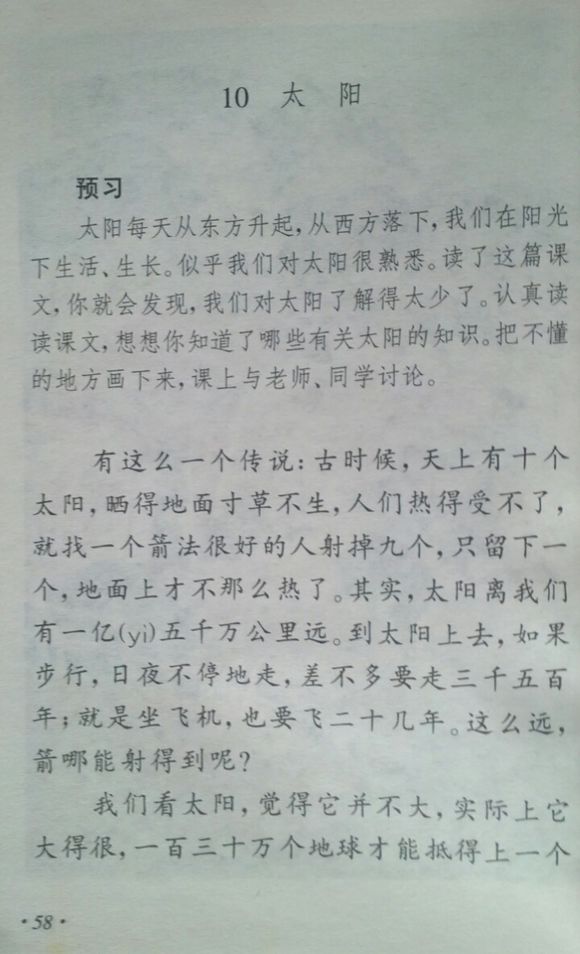 10 太 阳
预习
太阳每天从东方升起,从西方落下,我们在阳光
下生活、生长。似乎我们对太阳很熟悉。读了这篇课
文,你就会发现,我们对太阳了解得太少了。认真读
读课文,想想你知道了哪些有关太阳的知识。把不懂
的地方画下来,课上与老师、同学讨论。
有这么一个传说:古时候,天上有十个
太阳,晒得地面寸草不生,人们热得受不了,
就找一个箭法很好的人射掉九个,只留下一
个,地面上才不那么热了。其实,太阳离我们
有一亿(yì)五千万公里远。到太阳上去,如果
步行,日夜不停地走,差不多要走三千五百
年;就是坐飞机,也要飞二十几年。这么远,
箭哪能射得到呢?
我们看太阳,觉得它并不大,实际上它
大得很,一百三十万个地球才能抵得上一个
·58·